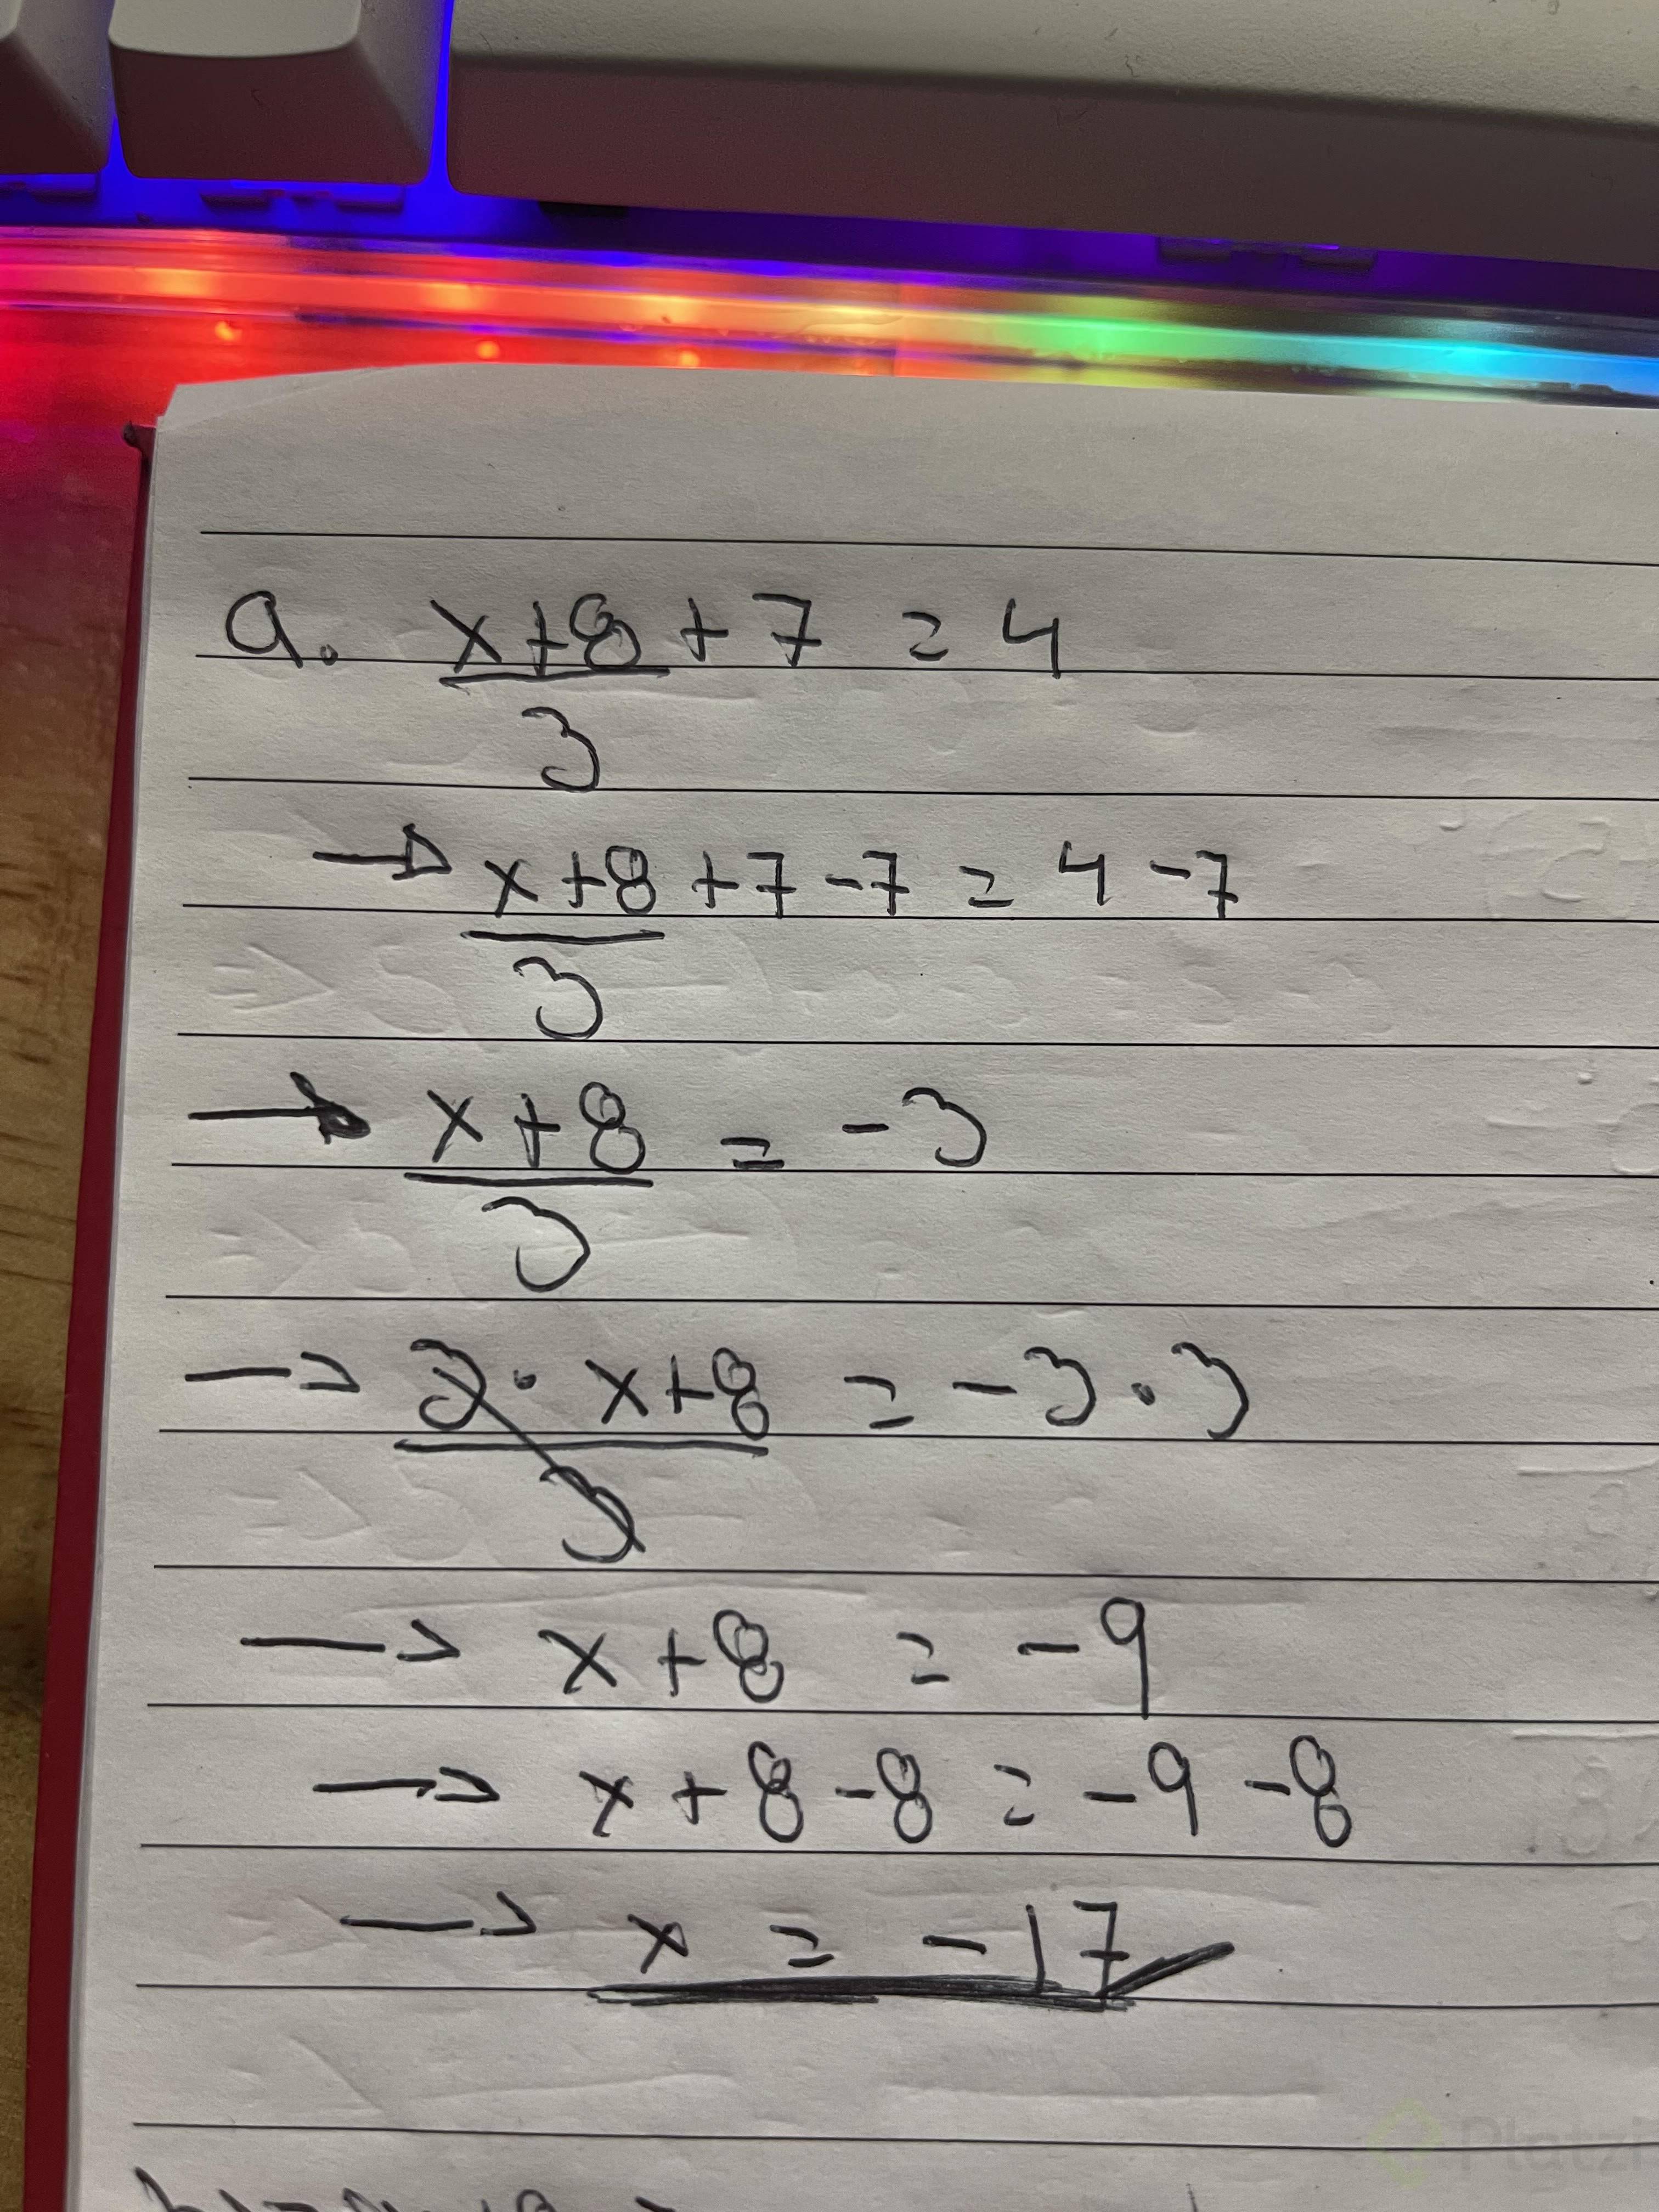 a. x+8 + 7 = 4
3
→ x+8 +7-7 = 4-7
3
→ x+8 = -3
3
→ 3 · x+8 = -3 · 3
3
→ x+8 = -9
→ x+8-8 = -9-8
→ x = -17
Platzi